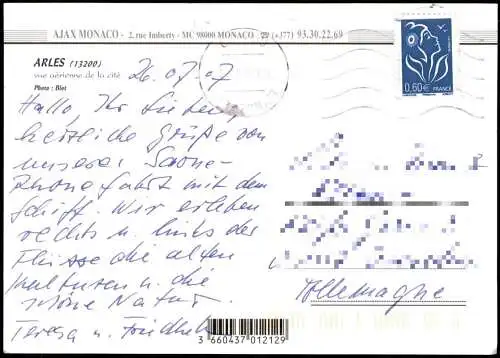 AJAX MONACO - 2, rue Imberty - MC 98000 MONACO ☎ (+377) 93.30.22.69
ARLES (13200)
vue aérienne de la cité
Photo : Biot
26.07.07
Hallo, Ihr Lieben,
herzliche Grüße von
unserer Saone-
Rhonefahrt mit dem
Schiff. Wir erleben
rechts u. links der
Flüsse die alten
Kulturen u. die
schöne Natur.
Teresa u. Friedhelm
0,60€ FRANCE
Allemagne
3 660437 012129